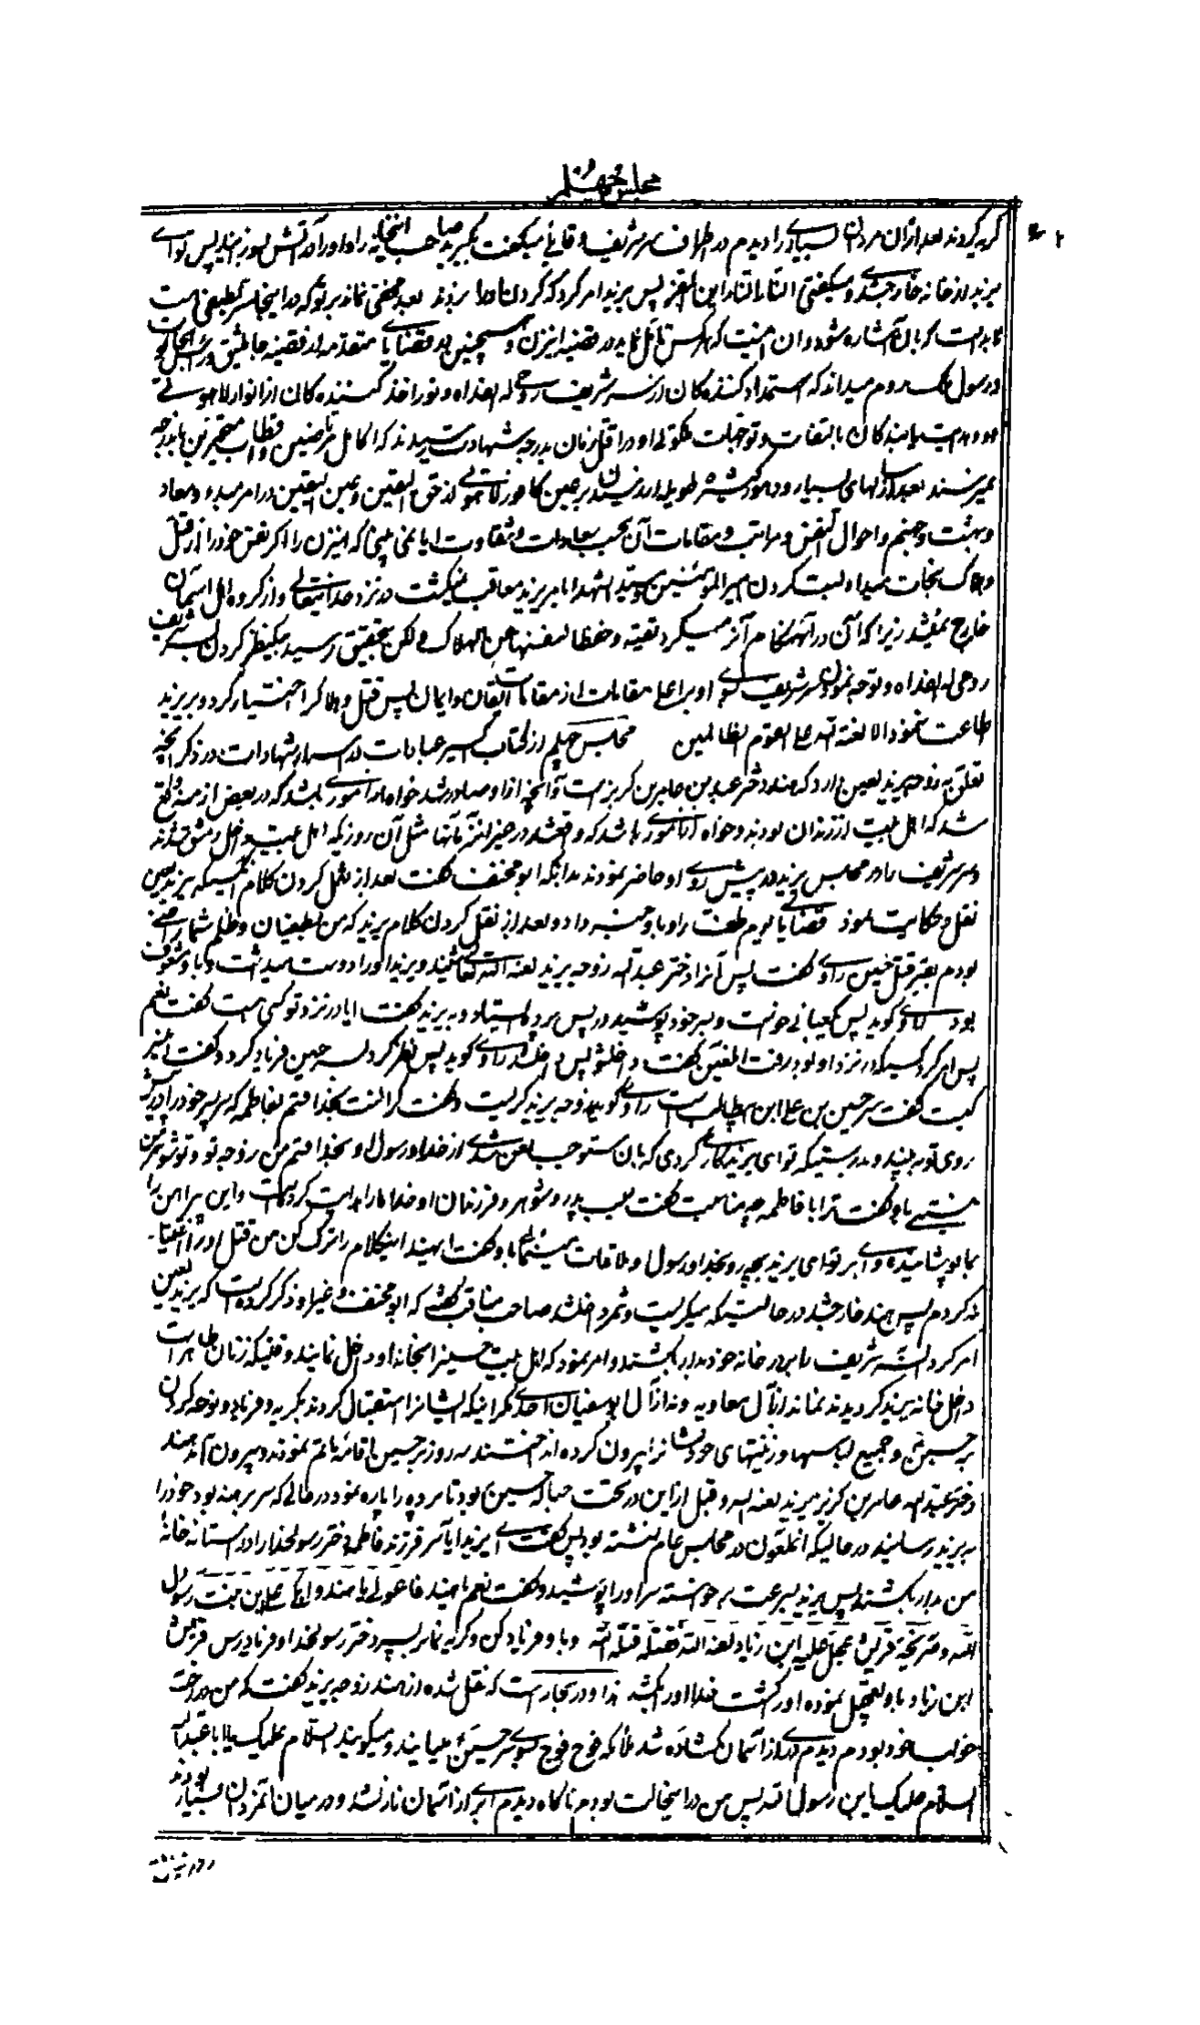 مجلس چهلم
گریه کردند بعد از آن مردان بسیاری را دیدم در اطراف سر شریف و قایلی میگفت بگیرید صاحب این خانه را و او را در آتش بسوزانید پس تو ای
یزید از خانه خارج شدی و میگفتی النار النار این المفر پس یزید امر کرد که گردن او را بزدند بعد مخفی نماند بر تو که در اینجا سر لطیفی است
که بدان اشاره شود و آن اینست که هر کس تأمل نماید در قضیه این زن و همچنین در قضایای متقدمه از قضیه جاثلیق و رأس الجالوت
و رسول ملک روم میداند که استمداد کنندهگان از سر شریف روحی له الفداه و نور اخذ کنندهگان از انوار لاهوتی
و هدایت یابندگان بالتفات و توجهات ملکوتی او در اقل زمان بدرجه شهادت رسیدند که اکامل مرتاضین و اقطاب متبحرین باندرجه
نمیرسند بعد از سالهای بسیار و دهور کثیره طویله
و بهشت و جهنم و احوال النفس و مراتب و مقامات آن بحسب سعادت و شقاوت ایا نمی بینی که این زن را اگر نفس خود را از قتل
و هلاک نجات میداد بسب کردن امیر المؤمنین و سید الشهدا با مر یزید معاقب نمیگشت در نزد خدایتعالی و از گروه اهل ایمان
خارج نمیشد زیرا که آن در آنهنگام آنرا میکرد تقیه و حفظا لنفسها من الهلاک و لکن بتحقیق رسید بیک نظر کردن بسر شریف
روحی له الفداه و توجه نمودن سر شریف بسوی او بر اعلی مقامات از مقامات ایقان و ایمان پس قتل و هلاک را اختیار کرد و بر یزید
طاعت ننمود الا لعنة الله علی القوم الظالمین مجلس چهلم از کتاب اکسیر عبادات در اسرار شهادات در ذکر آنچه
تعلق به زوجه یزید لعین دارد که هند دختر عبد الله بن عامر بن کریز است و آنچه از او صادر شد خواه از اموری باشد که در بعض ازمنه واقع
شد که اهل بیت در زندان بودند و خواه از اموری باشد که واقع شد در غیر آنزمانها مثل آن روزیکه اهل بیت داخل دمشق شدند
و سر شریف را در مجلس یزید در پیش روی او حاضر نمودند بدانکه ابو مخنف گفت بعد از نقل کردن کلام آنکسیکه بیزید لعین
نقل و حکایت نمود قضایای یوم طف را و باو خبر داد و بعد از نقل کردن کلام یزید که من بطغیان و ظلم شما راضی
بودم بغیر قتل حسین راوی گفت پس آنرا دختر عبد الله زوجه یزید لعنه الله شنید و یزید او را دوست میداشت و باو مشعوف
بود راوی گوید پس چیزی خواست و بر خود پوشید و در پس پرده ایستاد و به یزید گفت ایا در نزد تو کسی هست گفت نعم
پس امر کرد کسیکه در نزد او بود برفت
کیست گفت سر حسین بن علی ابن ابیطالب است راوی گوید زوجه یزید گریست و گفت گران است بخدا قسم بفاطمه که سر پسر خود را در پیش
روی تو به بیند و بدرستیکه تو ای یزید کاری کردی که بآن مستوجب لعن شدی از خدا و رسول و بخدا قسم من زوجه تو و تو شوهر من
نیستی باو گفت ترا با فاطمه چه مناسبت گفت بسبب پدر و شوهر و فرزندان او خدا ما را هدایت کرده است و این پیراهن را
بما پوشانیده وای بر تو ای یزید بچه رو بخدا و رسول او ملاقات میکنی باو گفت ای هند اینکلام را ترک کن من قتل او را اختیار
نکردم پس هند خارج شد در حالتیکه میگریست و شمر داخل شد صاحب مناقب گفته که ابو مخنف و غیر او ذکر کرده است که یزید لعین
امر کرد که سر شریف را بر در خانه خود بدار بکشند و امر نمود که اهل بیت حسین را بخانه او داخل نمایند و قتیکه زنان طاهرات
داخل خانه یزید گردیدند نماند از آل معاویه و نه از آل ابوسفیان احدی مگر اینکه ایشانرا استقبال کردند بگریه و فریاد و نوحه کردن
بر حسین و جمیع لباسها و زینتهای خودشانرا بیرون کرده انداختند سه روز بر حسین اقامه ماتم نمودند و بیرون آمد هند
دختر عبد الله عامر بن کریز زن یزید لعنه الله و قبل از این در تحت حباله حسین بود تا پرده را پاره نمود در حالی که سر برهنه بود خود را
به یزید رسانید در حالیکه آنملعون در مجلس عام نشسته بود پس گفت ای یزید ایا سر فرزند فاطمه دختر رسول خدا را در آستانه خانه
من بدار بکشند پس یزید بسرعت برخواسته سر او را پوشید و گفت نعم یا هند فاعولی یا هند و ابکی علی ابن بنت رسول
الله و صریخة قریش عجل علیه ابن زیاد لعنه الله فقتله قتله الله و با و فریاد کن و گریه نما بر پسر دختر رسول خدا و فریاد رس قریش
ابن زیاد باو تعجیل نموده او را کشت خدا او را بکشد و در بحار است که نقل شده از هند زوجه یزید گفت که من در رخت
خواب خود بودم دیدم دری از آسمان گشاده شد ملائکه فوج فوج بسوی سر حسین میایند و میگویند السلام علیک یا ابا عبد الله
السلام علیک یابن رسول الله پس من در اینحالت بودم ناگاه دیدم ابری از آسمان نازل شد و در میان آن مردان بسیار بودند